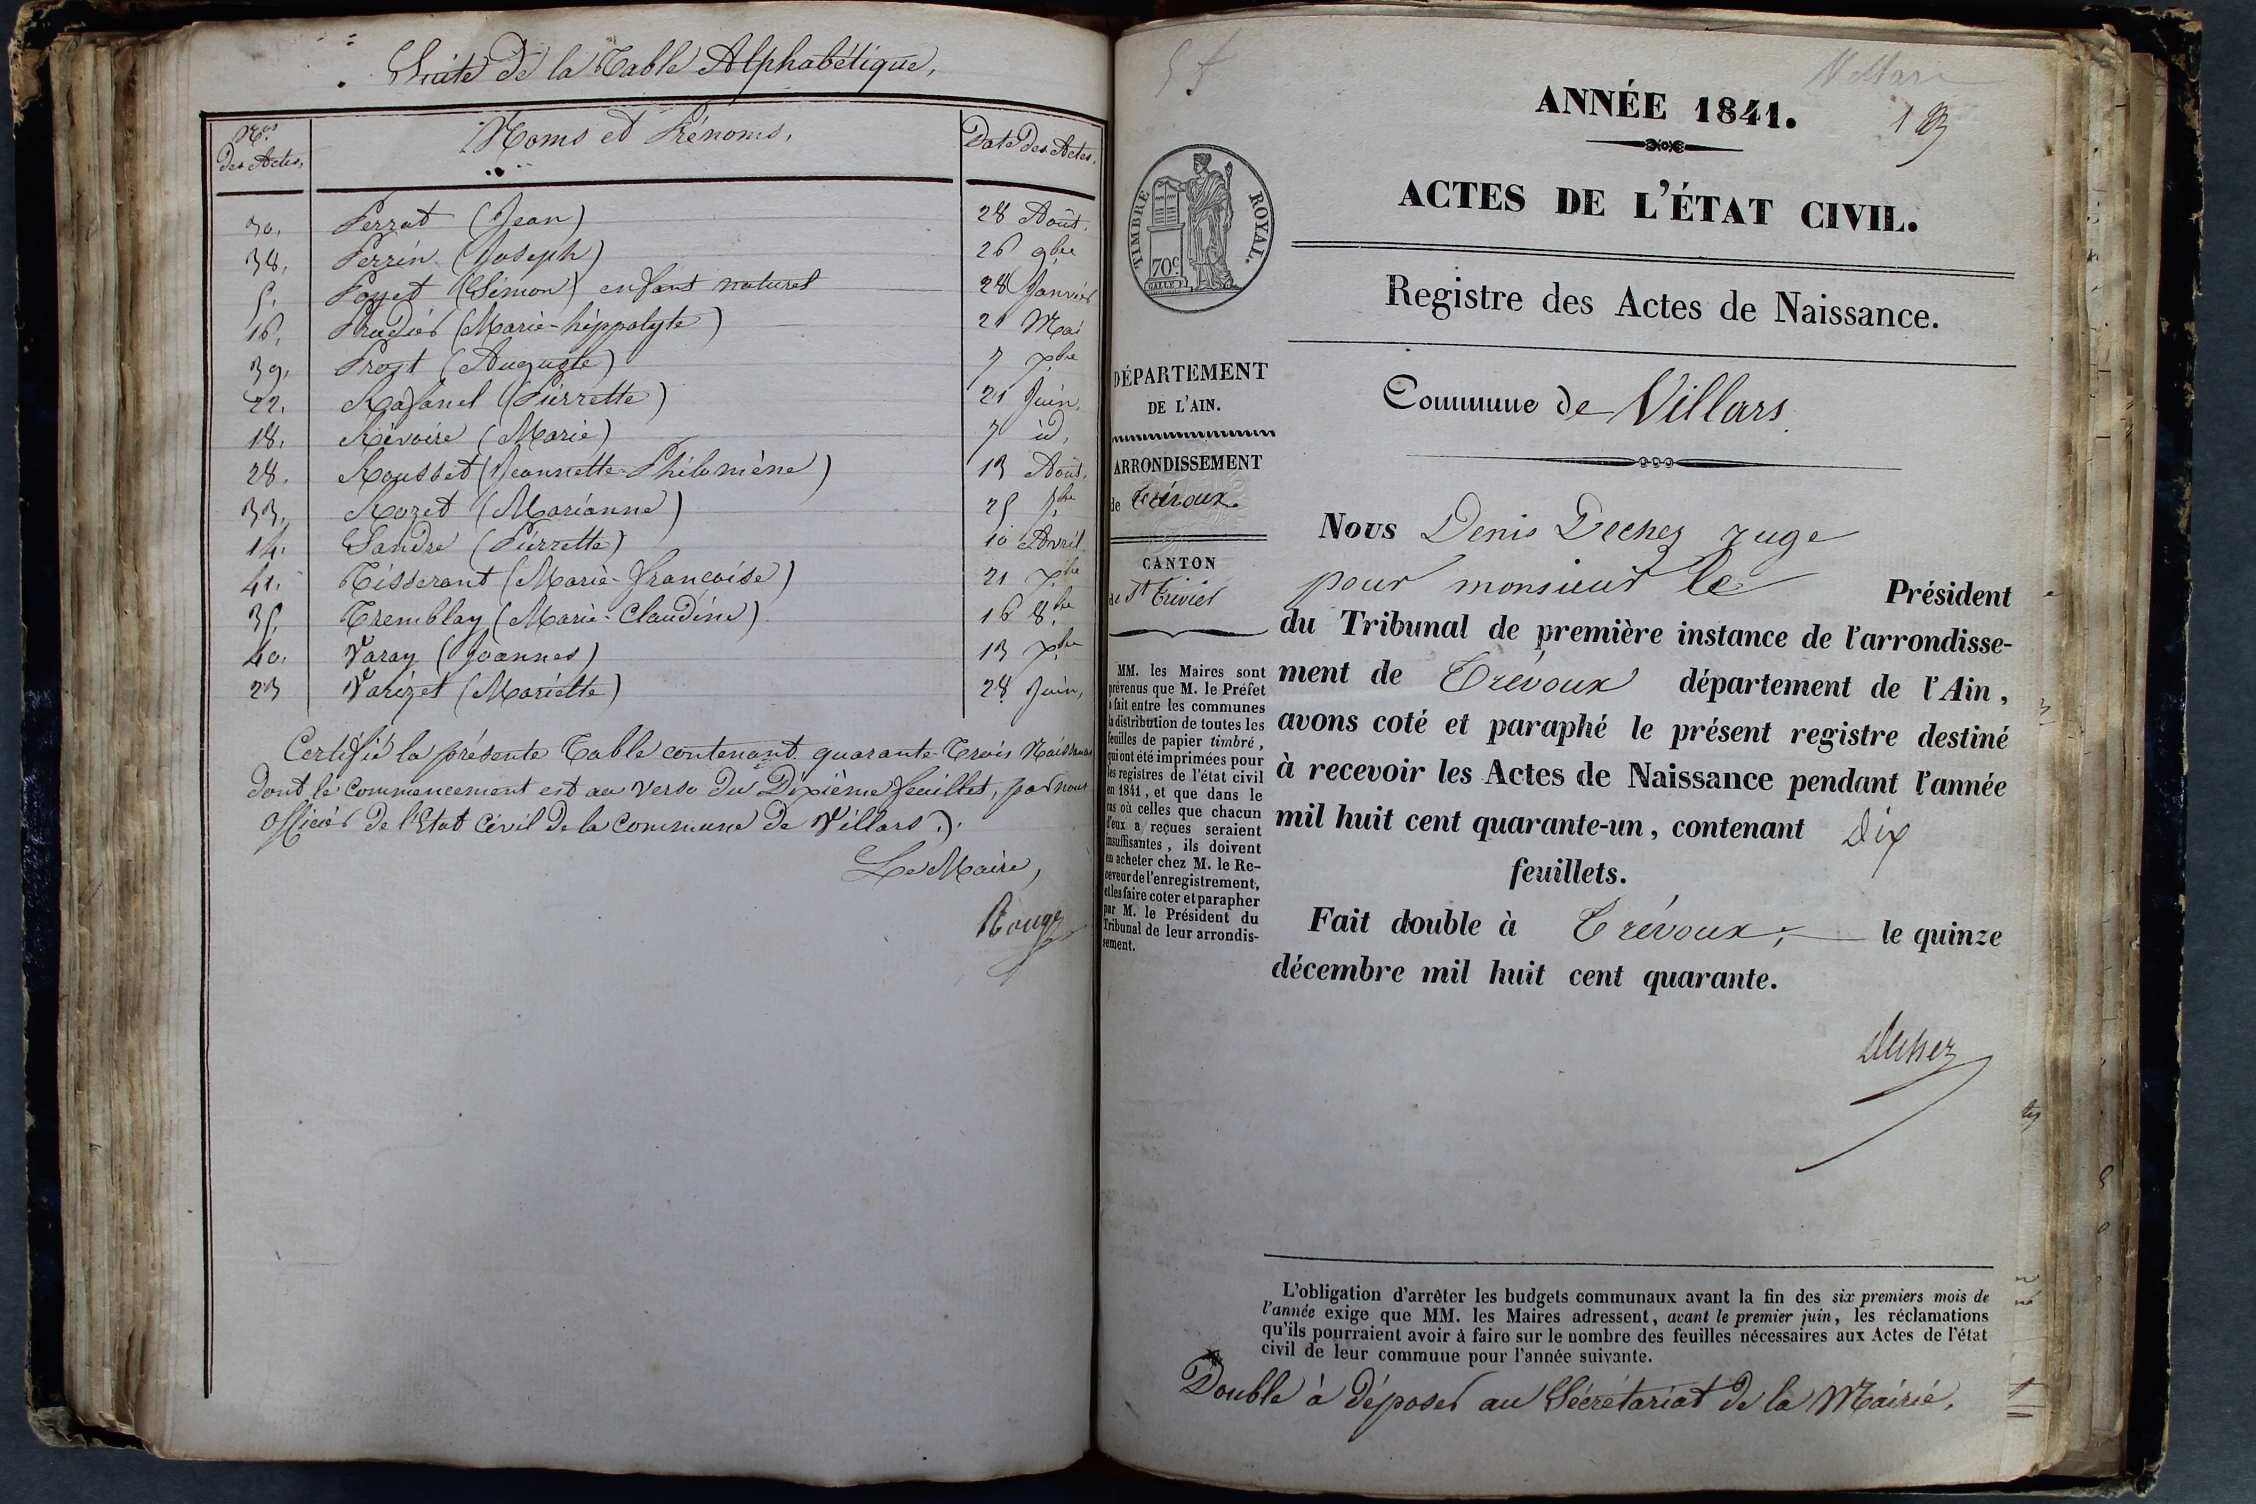 Suite de la Table Alphabétique,
Nos des Actes, Noms et Prénoms, Date des Actes.
30, Perrat (Jean) 28 Août.
38, Perrin (Joseph) 26 9bre
5. Poyet (Simon) enfant naturel 28 Janvier
16, Pradier (Marie-hippolyte) 21 Mai
39, Prost (Auguste) 7 Xbre
22, Rafanel (Pierrette) 21 Juin,
18. Révoire (Marie) 7 id,
28. Rousset (Jeannette-Philomène) 13 Août,
33, Rozet (Marianne) 25 7bre
14. Sandre (Pierrette) 10 Avril
41. Tisserant (Marie-françoise) 21 Xbre
35. Tremblay (Marie-Claudine) 16 8bre
40, Varay (Joannes) 13 Xbre
23 Varizet (Mariette) 28 Juin,
Certifié la présente Table contenant quarante-Trois Naissances
dont le commencement est au verso du Dixième feuillet, par nous
Officier de l'Etat Civil de la Commune de Villars.
Le Maire,
Rouge
Villars
ANNÉE 1841.
1
ACTES DE L'ÉTAT CIVIL.
TIMBRE ROYAL.
70c
Registre des Actes de Naissance.
DÉPARTEMENT
DE L'AIN.
ARRONDISSEMENT
de Trévoux
CANTON
de St Trivier
MM. les Maires sont
prévenus que M. le Préfet
a fait entre les communes
la distribution de toutes les
feuilles de papier timbré,
qui ont été imprimées pour
les registres de l'état civil
en 1841, et que dans le
cas où celles que chacun
d'eux a reçues seraient
insuffisantes, ils doivent
en acheter chez M. le Re-
ceveur de l'enregistrement,
et les faire coter et parapher
par M. le Président du
Tribunal de leur arrondis-
sement.
Commune de Villars
Nous Denis Dechez juge
pour monsieur le Président
du Tribunal de première instance de l'arrondisse-
ment de Trévoux département de l'Ain,
avons coté et paraphé le présent registre destiné
à recevoir les Actes de Naissance pendant l'année
mil huit cent quarante-un, contenant dix
feuillets.
Fait double à Trévoux, le quinze
décembre mil huit cent quarante.
Dechez
L'obligation d'arrêter les budgets communaux avant la fin des six premiers mois de
l'année exige que MM. les Maires adressent, avant le premier juin, les réclamations
qu'ils pourraient avoir à faire sur le nombre des feuilles nécessaires aux Actes de l'état
civil de leur commune pour l'année suivante.
Double à déposer au Sécrétariat de la Mairie.